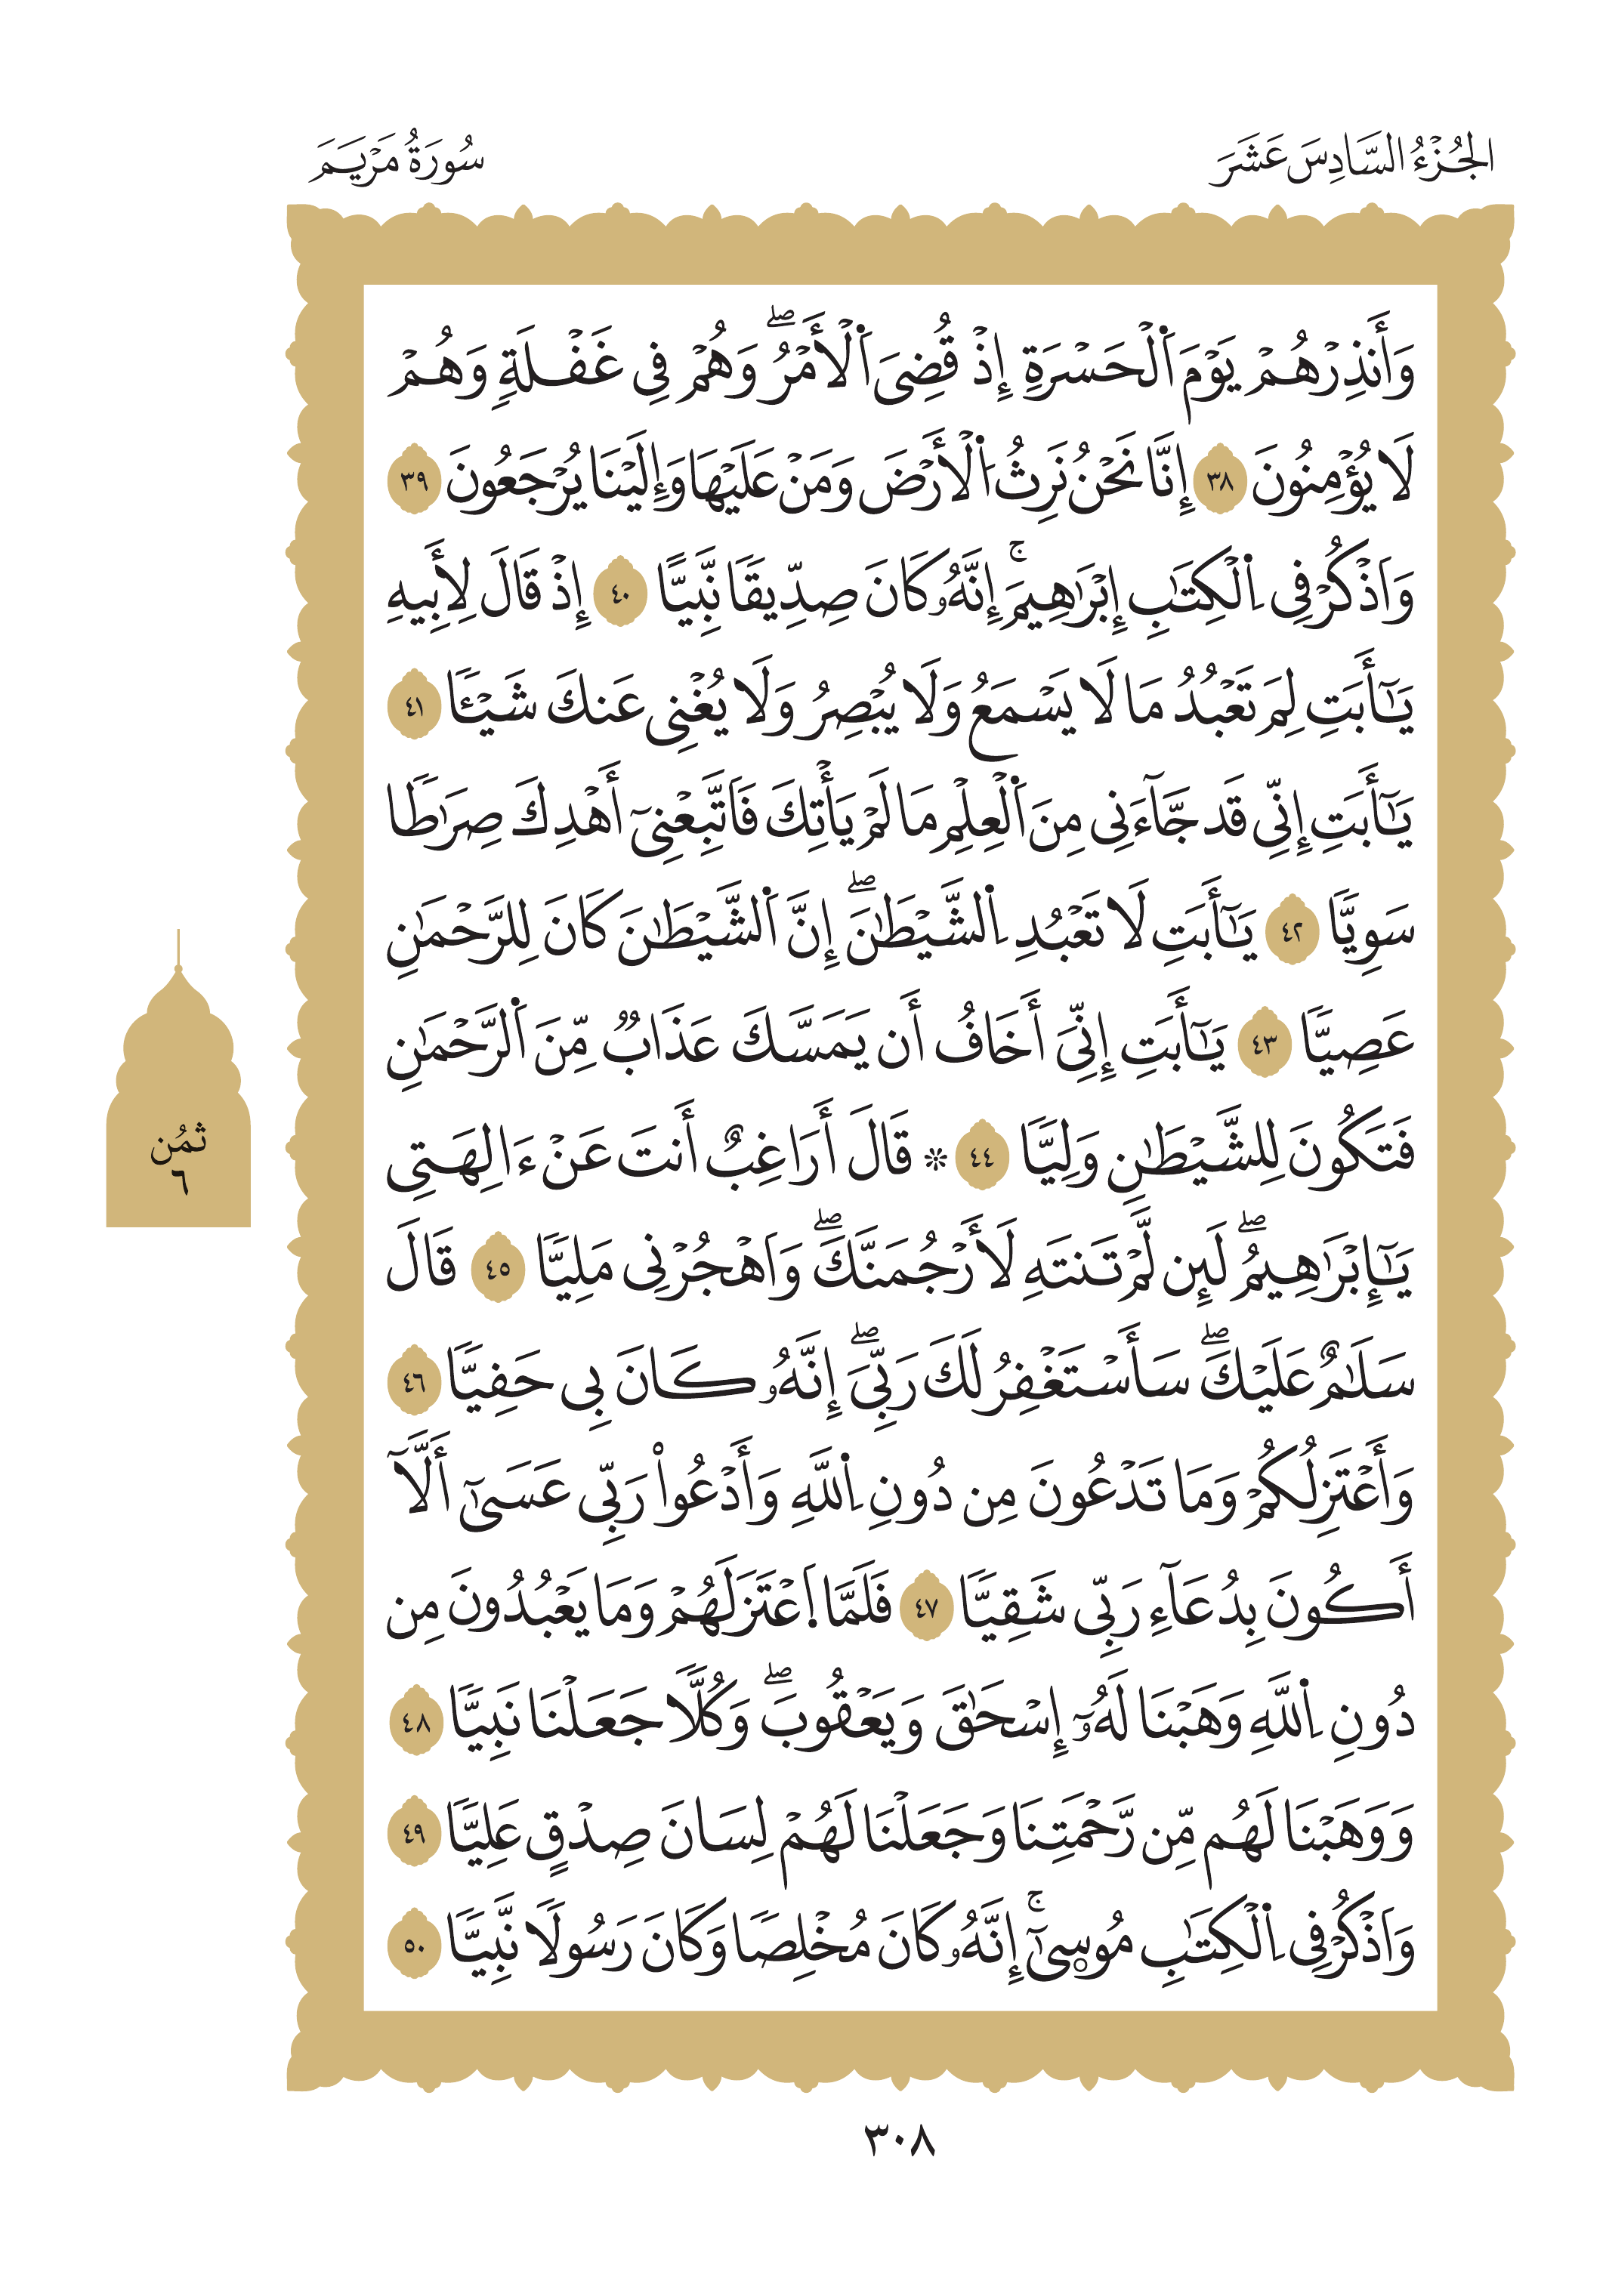 الجُزْءُ السَّادِسَ عَشَرَ
سُورَةُ مَرْيَمَ
وَأَنذِرْهُمْ يَوْمَ اَ۬لْحَسْرَةِ إِذْ قُضِيَ اَ۬لْأَمْرُۖ وَهُمْ فِي غَفْلَةٍ وَهُمْ
لَا يُؤْمِنُونَ ٣٨ إِنَّا نَحْنُ نَرِثُ اُ۬لْأَرْضَ وَمَنْ عَلَيْهَا وَإِلَيْنَا يُرْجَعُونَ ٣٩
وَاَذْكُرْ فِي اِ۬لْكِتَٰبِ إِبْرَٰهِيمَۚ إِنَّهُۥ كَانَ صِدِّيقًا نَّبِيًّا ٤٠ إِذْ قَالَ لِأَبِيهِ
يَٰٓأَبَتِ لِمَ تَعْبُدُ مَا لَا يَسْمَعُ وَلَا يُبْصِرُ وَلَا يُغْنِي عَنكَ شَيْـًٔا ٤١
يَٰٓأَبَتِ إِنِّي قَد جَّآءَنِي مِنَ اَ۬لْعِلْمِ مَا لَمْ يَأْتِكَ فَاَتَّبِعْنِيٓ أَهْدِكَ صِرَٰطًا
سَوِيًّا ٤٢ يَٰٓأَبَتِ لَا تَعْبُدِ اِ۬لشَّيْطَٰنَۖ إِنَّ اَ۬لشَّيْطَٰنَ كَانَ لِلرَّحْمَٰنِ
عَصِيًّا ٤٣ يَٰٓأَبَتِ إِنِّيَ أَخَافُ أَن يَمَسَّكَ عَذَابٌ مِّنَ اَ۬لرَّحْمَٰنِ
فَتَكُونَ لِلشَّيْطَٰنِ وَلِيًّا ٤٤ ۞ قَالَ أَرَاغِبٌ أَنتَ عَنْ ءَالِهَتِي
يَٰٓإِبْرَٰهِيمُۖ لَئِن لَّمْ تَنتَهِ لَأَرْجُمَنَّكَۖ وَاَهْجُرْنِي مَلِيًّا ٤٥ قَالَ
سَلَٰمٌ عَلَيْكَۖ سَأَسْتَغْفِرُ لَكَ رَبِّيَۖ إِنَّهُۥ كَانَ بِي حَفِيًّا ٤٦
وَأَعْتَزِلُكُمْ وَمَا تَدْعُونَ مِن دُونِ اِ۬للَّهِ وَأَدْعُواْ رَبِّي عَسَىٰٓ أَلَّآ
أَكُونَ بِدُعَآءِ رَبِّي شَقِيًّا ٤٧ فَلَمَّا اَ۪عْتَزَلَهُمْ وَمَا يَعْبُدُونَ مِن
دُونِ اِ۬للَّهِ وَهَبْنَا لَهُۥٓ إِسْحَٰقَ وَيَعْقُوبَۖ وَكُلًّا جَعَلْنَا نَبِيًّا ٤٨
وَوَهَبْنَا لَهُم مِّن رَّحْمَتِنَا وَجَعَلْنَا لَهُمْ لِسَانَ صِدْقٍ عَلِيًّا ٤٩
وَاَذْكُرْ فِي اِ۬لْكِتَٰبِ مُوسِىٰٓۚ إِنَّهُۥ كَانَ مُخْلِصًا وَكَانَ رَسُولًا نَّبِيًّا ٥٠
ثُمُن
٦
٣٠٨